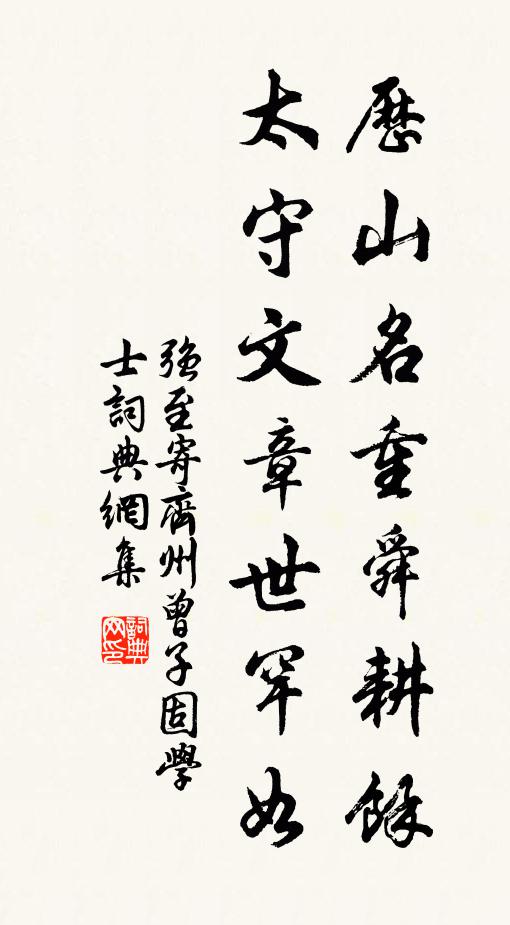 歷山名重舜耕餘
太守文章世罕如
強至寄齊州曾子固學
士詞典網集
詞典網印